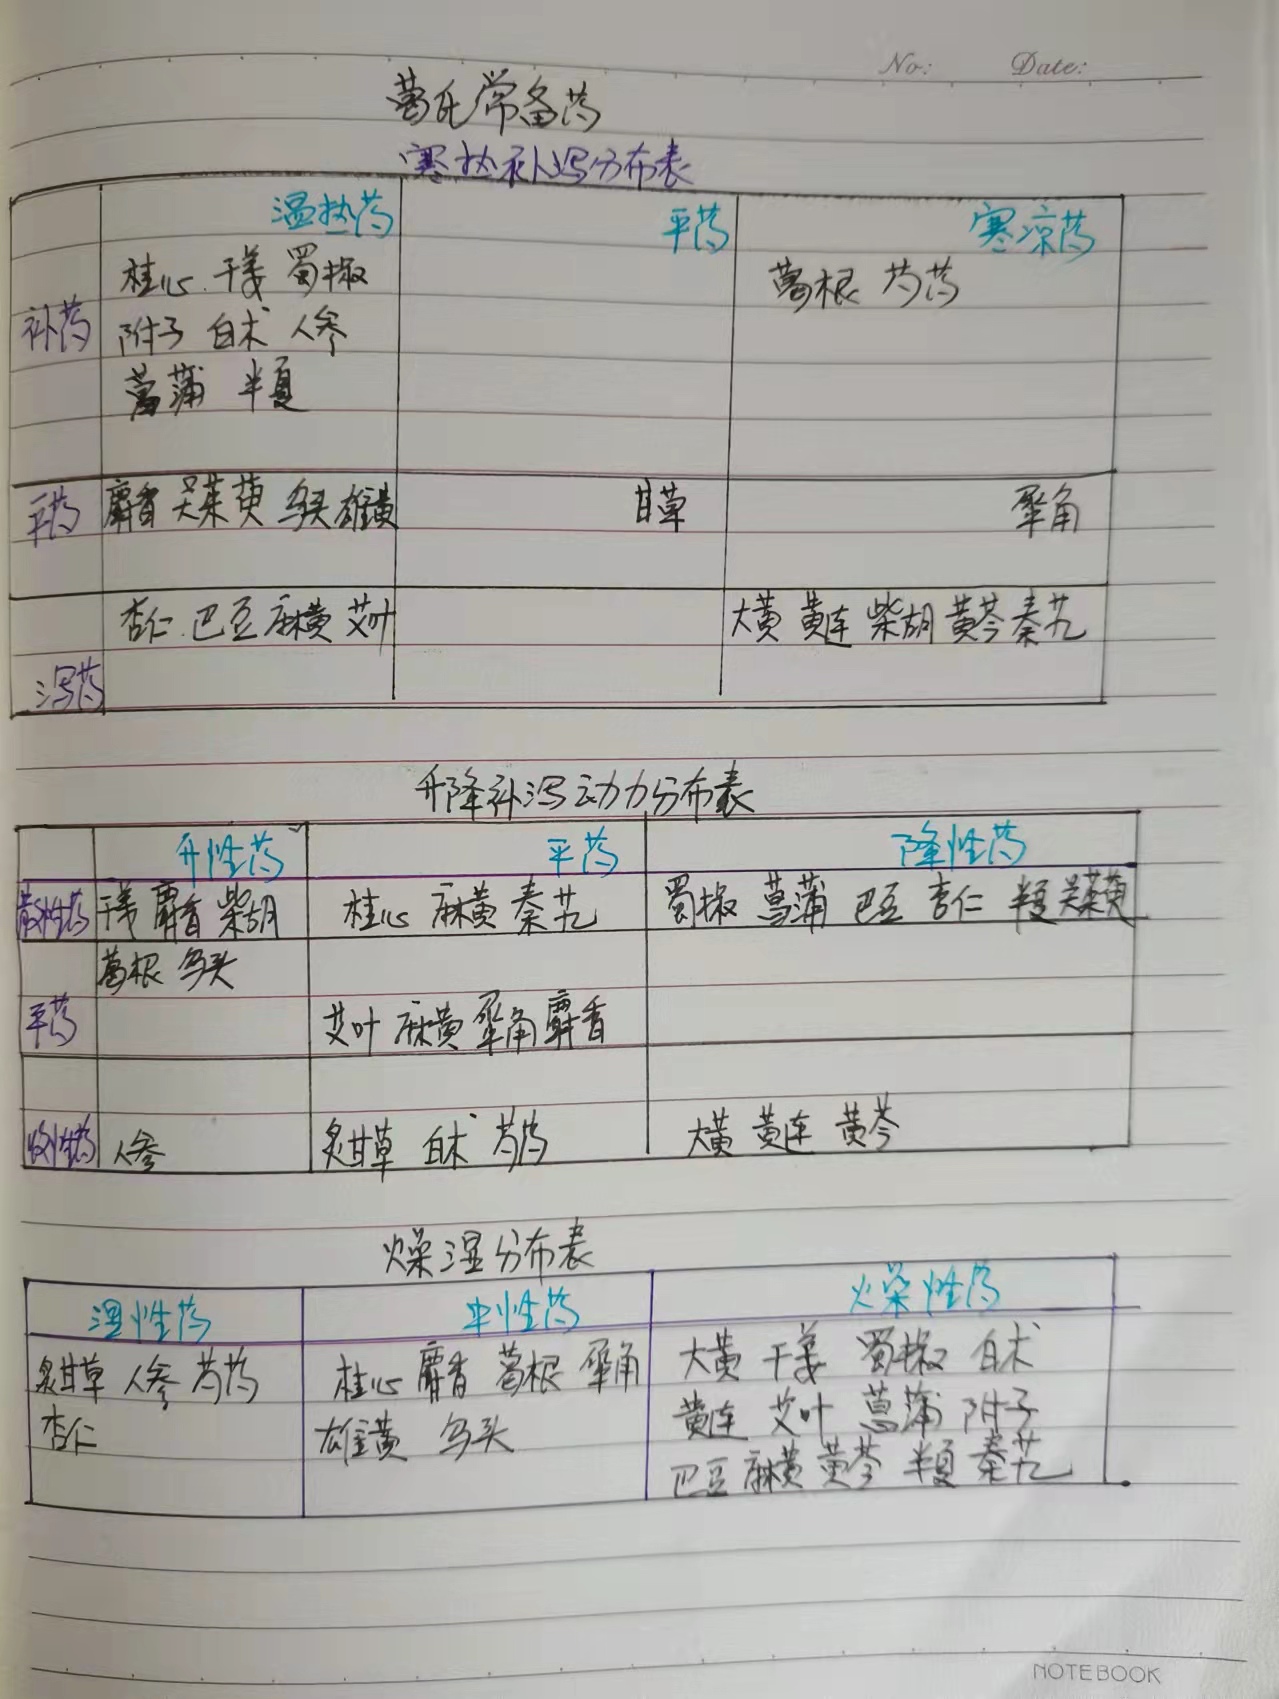 No: Date:
葛氏常备药
寒热补泻分布表
温热药 平药 寒凉药
桂心 干姜 蜀椒 葛根 芍药
补药 附子 白术 人参
菖蒲 半夏
平药 麝香 吴茱萸 乌头 雄黄 甘草 犀角
杏仁 巴豆 麻黄 艾叶 大黄 黄连 柴胡 黄芩 秦艽
泻药
升降补泻动力分布表
升性药 平药 降性药
散性药 干姜 麝香 柴胡 桂心 麻黄 秦艽 蜀椒 菖蒲 巴豆 杏仁 半夏 吴茱萸
葛根 乌头
平药 艾叶 麻黄 犀角 麝香
收性药 人参 炙甘草 白术 芍药 大黄 黄连 黄芩
燥湿分布表
湿性药 中性药 燥性药
炙甘草 人参 芍药 桂心 麝香 葛根 犀角 大黄 干姜 蜀椒 白术
杏仁 雄黄 乌头 黄连 艾叶 菖蒲 附子
巴豆 麻黄 黄芩 半夏 秦艽
NOTEBOOK